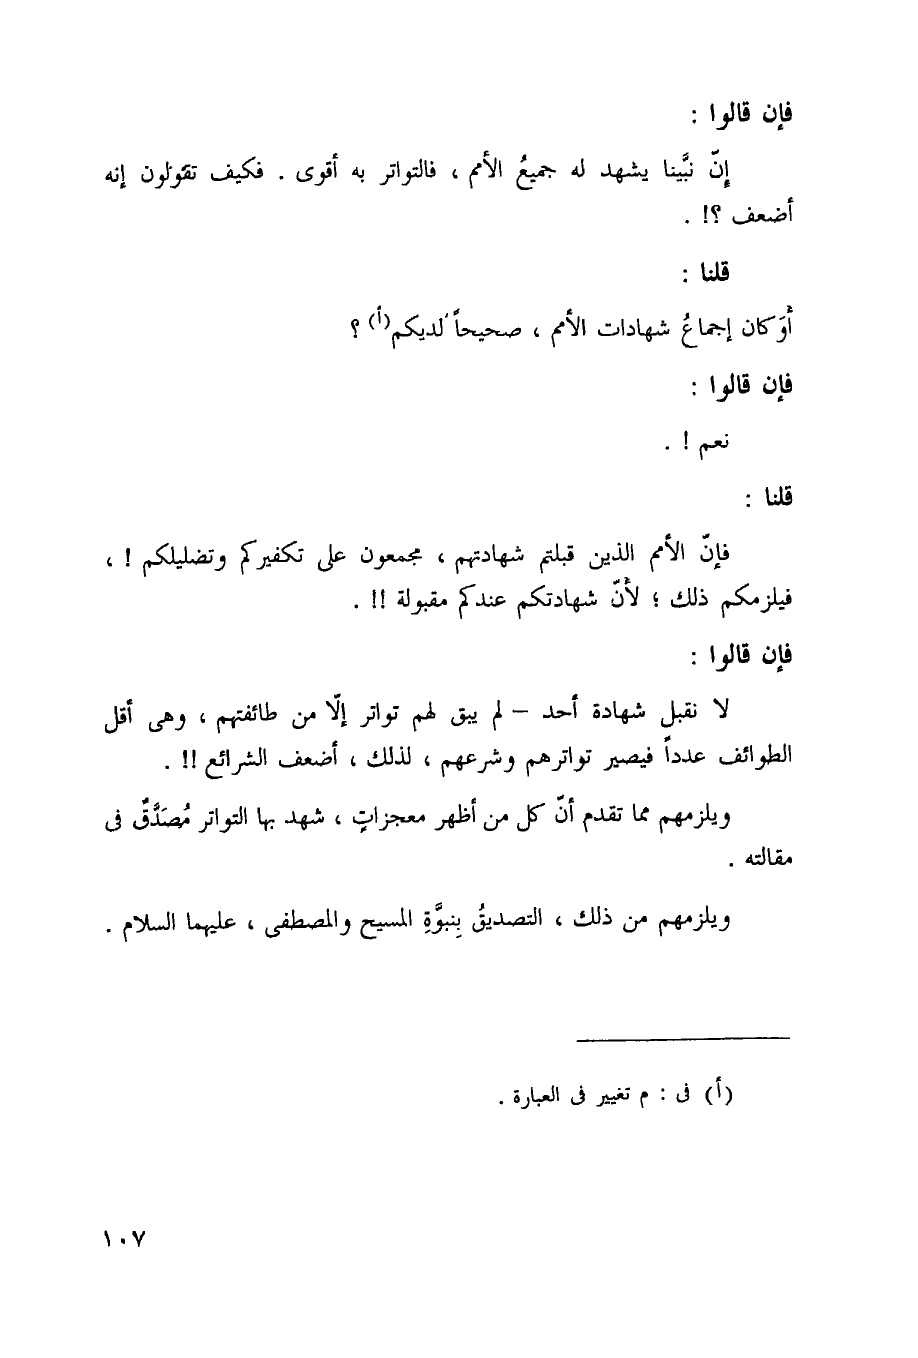 فإن قالوا :
إنّ نبَّينا يشهد له جميعُ الأمم ، فالتواتر به أقوى . فكيف تقولون إنه
أضعف ؟! .
قلنا :
أوَ كان إجماعُ شهادات الأمم ، صحيحاً لديكم(أ) ؟
فإن قالوا :
نعم ! .
قلنا :
فإنّ الأمم الذين قبلتم شهادتهم ، مجمعون على تكفيركم وتضليلكم ! ،
فيلزمكم ذلك ؛ لأنّ شهادتكم عندكم مقبولة !! .
فإن قالوا :
لا نقبل شهادة أحد – لم يبق لهم تواتر إلّا من طائفتهم ، وهى أقل
الطوائف عدداً فيصير تواترهم وشرعهم ، لذلك ، أضعف الشرائع !! .
ويلزمهم مما تقدم أنّ كل من أظهر معجزاتٍ ، شهد بها التواتر مُصَدَّقٌ فى
مقالته .
ويلزمهم من ذلك ، التصديقُ بِنبوَّةِ المسيح والمصطفى ، عليهما السلام .
(أ) فى : م تغيير فى العبارة .
١٠٧